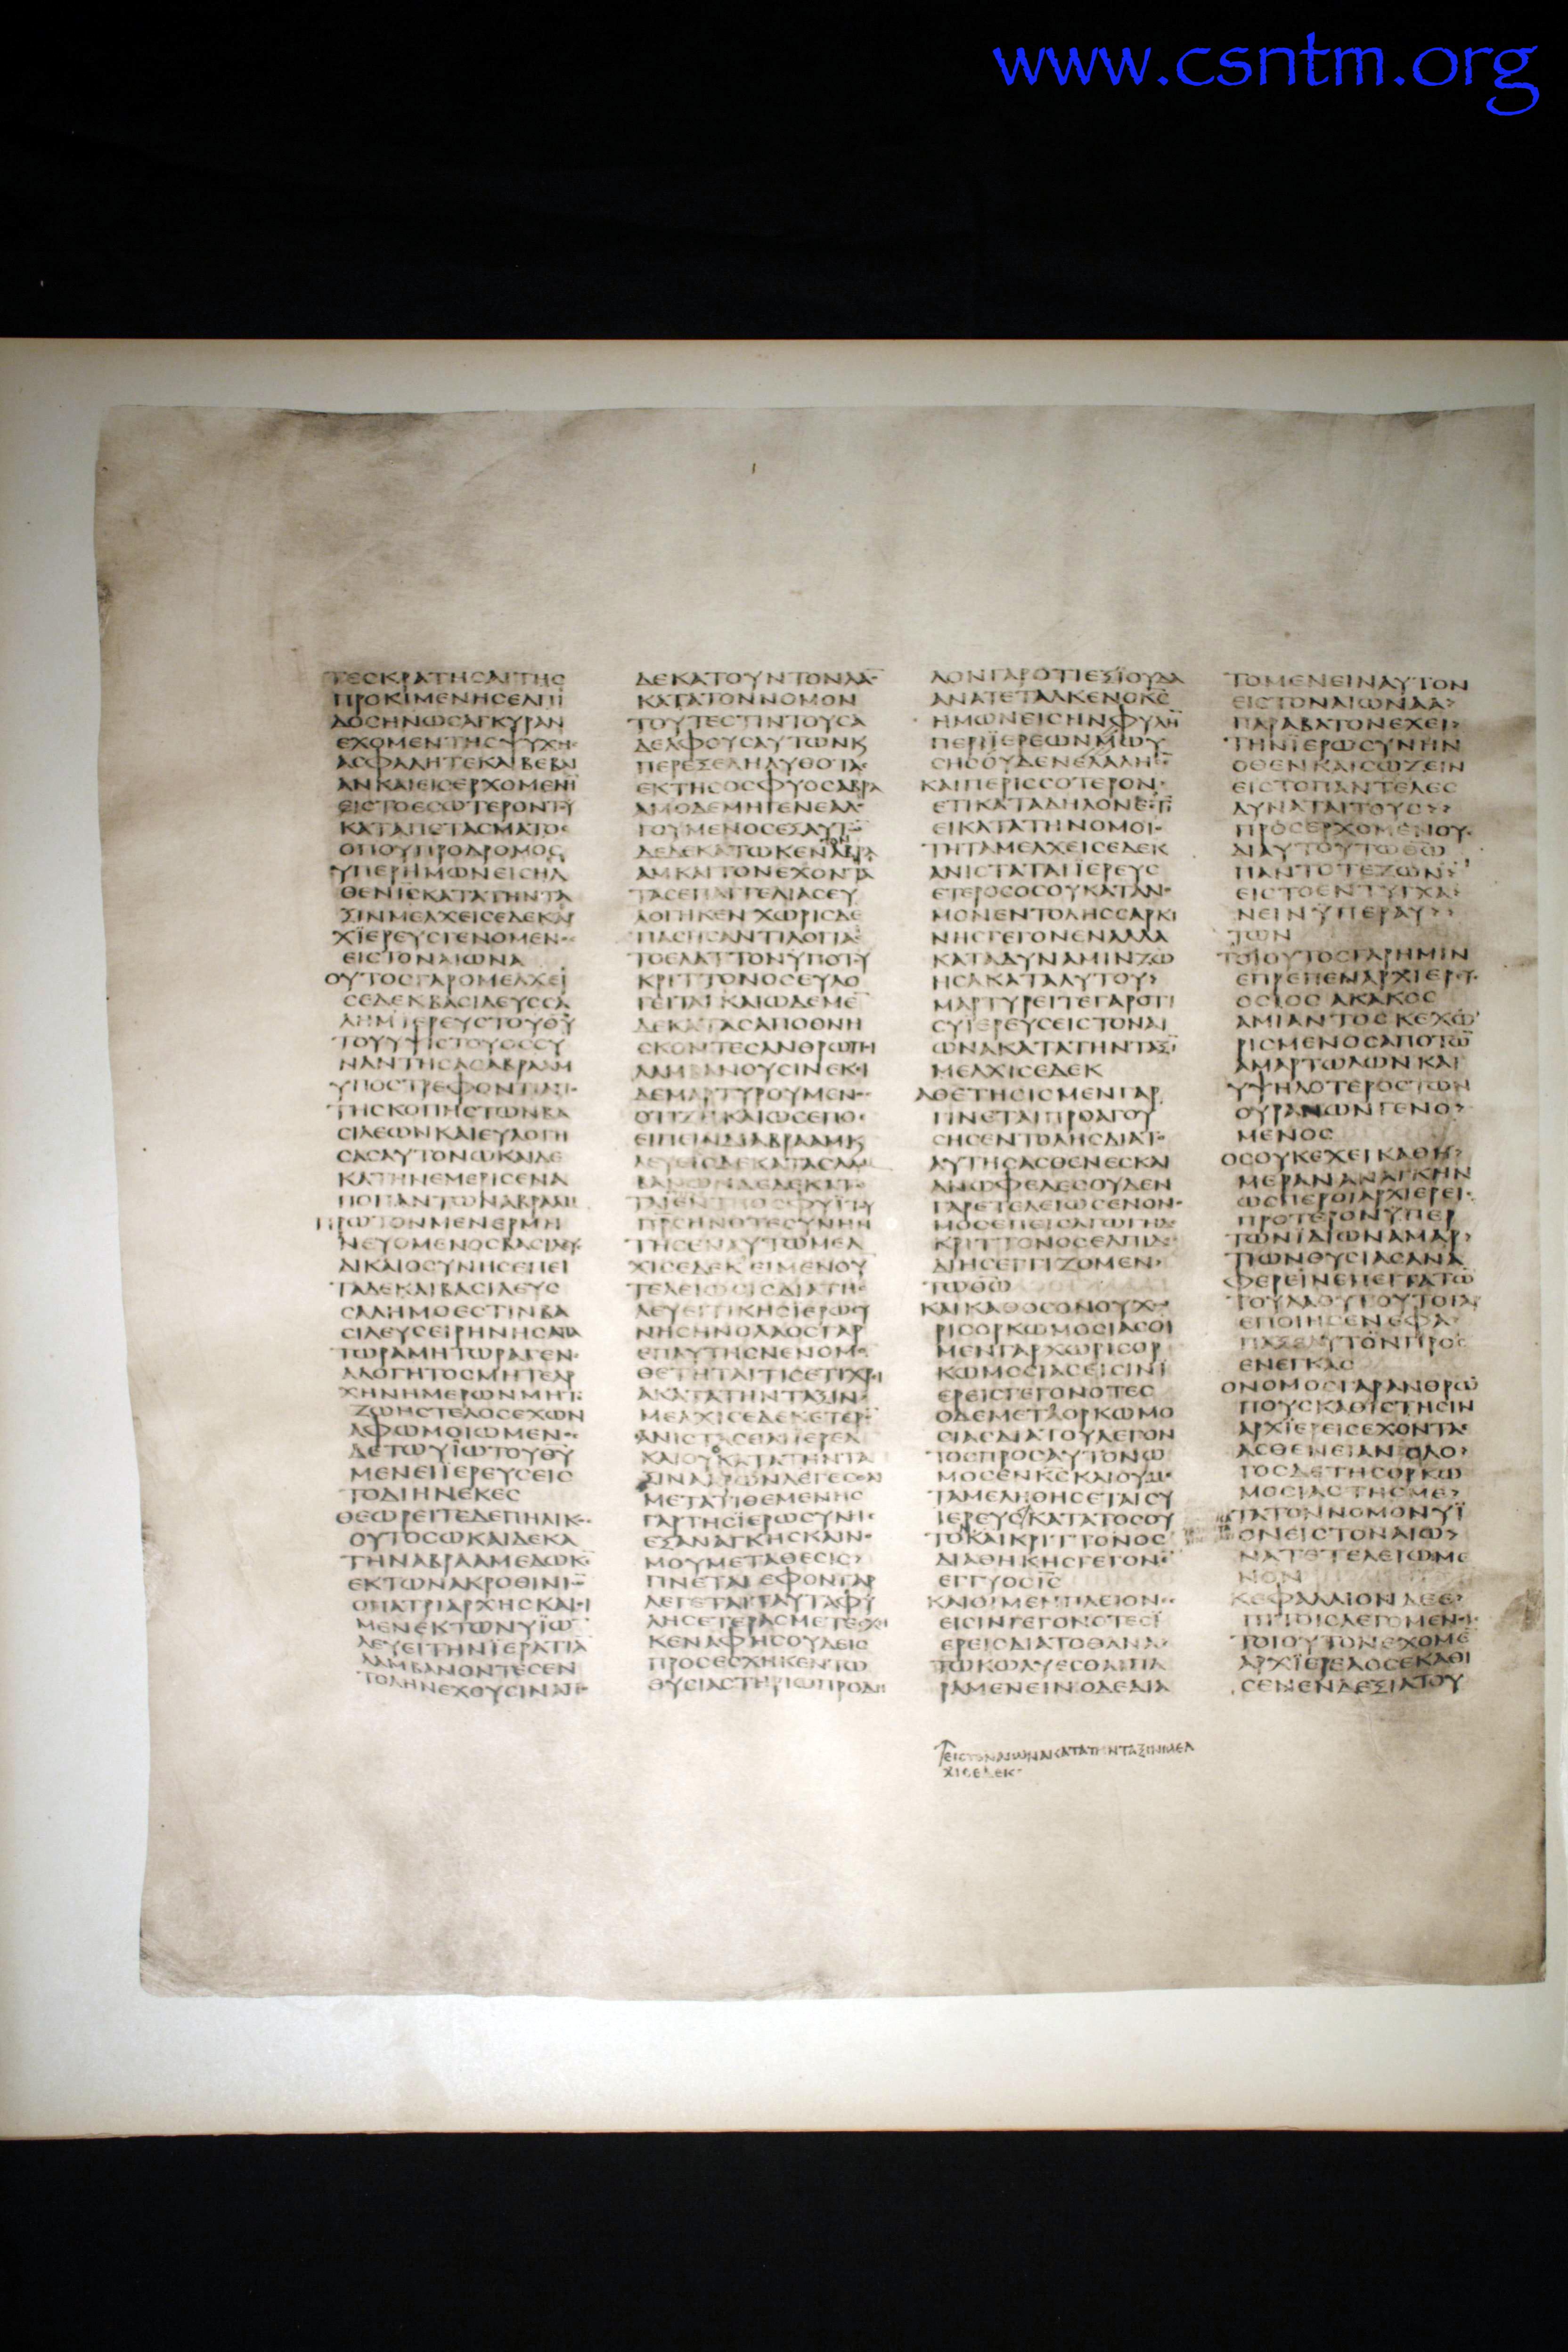 www.csntm.org
ΤΕСΚΡΑΤΗСΑΙΤΗС
ΠΡΟΚΙΜΕΝΗСΕΛΠΙ
ΔΟСΗΝΩСΑΓΚΥΡΑΝ
ΕΧΟΜΕΝΤΗСΨΥΧΗ
ΑСΦΑΛΗΤΕΚΑΙΒΕΒΑΙ
ΑΝΚΑΙΕΙСΕΡΧΟΜΕΝΗ
ΕΙСΤΟΕСΩΤΕΡΟΝΤΥ
ΚΑΤΑΠΕΤΑСΜΑΤΟС
ΟΠΟΥΠΡΟΔΡΟΜΟС
ΥΠΕΡΗΜΩΝΕΙСΗΛ
ΘΕΝΙСΚΑΤΑΤΗΝΤΑ
ΞΙΝΜΕΛΧΕΙСΕΔΕΚΑΡ
ΧΪΕΡΕΥСΓΕΝΟΜΕΝ
ΕΙСΤΟΝΑΙΩΝΑ
ΟΥΤΟСΓΑΡΟΜΕΛΧΕΙ
СΕΔΕΚΒΑСΙΛΕΥССΑ
ΛΗΜΪΕΡΕΥСΤΟΥΘΥ
ΤΟΥΥΨΙСΤΟΥΟССΥ
ΝΑΝΤΗСΑСΑΒΡΑΑΜ
ΥΠΟСΤΡΕΦΟΝΤΙΑΠ
ΤΗСΚΟΠΗСΤΩΝΒΑ
СΙΛΕΩΝΚΑΙΕΥΛΟΓΗ
СΑСΑΥΤΟΝΩΚΑΙΔΕ
ΚΑΤΗΝΕΜΕΡΙСΕΝΑ
ΠΟΠΑΝΤΩΝΑΒΡΑΑΜ
ΠΡΩΤΟΝΜΕΝΕΡΜΗ
ΝΕΥΟΜΕΝΟСΒΑСΙΛΕΥС
ΔΙΚΑΙΟСΥΝΗСΕΠΕΙ
ΤΑΔΕΚΑΙΒΑСΙΛΕΥС
СΑΛΗΜΟΕСΤΙΝΒΑ
СΙΛΕΥСΕΙΡΗΝΗСΑΠΑ
ΤΩΡΑΜΗΤΩΡΑΓΕΝ
ΑΛΟΓΗΤΟСΜΗΤΕΑΡ
ΧΗΝΗΜΕΡΩΝΜΗΤΕ
ΖΩΗСΤΕΛΟСΕΧΩΝ
ΑΦΩΜΟΙΩΜΕΝ
ΔΕΤΩΥΪΩΤΟΥΘΥ
ΜΕΝΕΙΪΕΡΕΥСΕΙС
ΤΟΔΙΗΝΕΚΕС
ΘΕΩΡΕΙΤΕΔΕΠΗΛΙΚ
ΟΥΤΟСΩΚΑΙΔΕΚΑ
ΤΗΝΑΒΡΑΑΜΕΔΩΚ
ΕΚΤΩΝΑΚΡΟΘΙΝΙ
ΟΠΑΤΡΙΑΡΧΗСΚΑΙΟΙ
ΜΕΝΕΚΤΩΝΥΪΩ
ΛΕΥΕΙΤΗΝΪΕΡΑΤΙΑ
ΛΑΜΒΑΝΟΝΤΕСΕΝ
ΤΟΛΗΝΕΧΟΥСΙΝΑΠ
ΔΕΚΑΤΟΥΝΤΟΝΛΑ
ΚΑΤΑΤΟΝΝΟΜΟΝ
ΤΟΥΤΕСΤΙΝΤΟΥСΑ
ΔΕΛΦΟΥСΑΥΤΩΝΚ
ΠΕΡΕΞΕΛΗΛΥΘΟΤΑ
ΕΚΤΗСΟСΦΥΟСΑΒΡΑ
ΑΜΟΔΕΜΗΓΕΝΕΑΛ
ΓΟΥΜΕΝΟСΕΞΑΥΤ
ΔΕΔΕΚΑΤΩΚΕΝΑΒΡΑ
ΑΜΚΑΙΤΟΝΕΧΟΝΤΑ
ΤΑСΕΠΑΓΓΕΛΙΑСΕΥ
ΛΟΓΗΚΕΝΧΩΡΙСΔΕ
ΠΑСΗСΑΝΤΙΛΟΓΙΑ
ΤΟΕΛΑΤΤΟΝΥΠΟΤΥ
ΚΡΙΤΤΟΝΟСΕΥΛΟ
ΓΕΙΤΑΙΚΑΙΩΔΕΜΕ
ΔΕΚΑΤΑСΑΠΟΘΝΗ
СΚΟΝΤΕСΑΝΘΡΩΠΗ
ΛΑΜΒΑΝΟΥСΙΝΕΚΙ
ΔΕΜΑΡΤΥΡΟΥΜΕΝ
ΟΤΙΖΗΚΑΙΩСΕΠΟ
ΕΙΠΙΝΔΙΑΒΡΑΑΜΚ
ΛΕΥΕΙСΔΕΚΑΤΑСΛΑΜ
ΒΑΝΩΝΔΕΔΕΚΑΤ
ΤΑΙΕΝΤΗΟСΦΥΪΤΥ
ΠΡСΗΝΟΤΕСΥΝΗΝ
ΤΗСΕΝΑΥΤΩΜΕΛ
ΧΙСΕΔΕΚΕΙΜΕΝΟΥ
ΤΕΛΕΙΩСΙСΔΙΑΤΗ
ΛΕΥΕΙΤΙΚΗСΪΕΡΩСΥ
ΝΗСΗΝΟΛΑΟСΓΑΡ
ΕΠΑΥΤΗСΝΕΝΟΜ
ΘΕΤΗΤΑΙΤΙСΕΤΙΧΡΙ
ΑΚΑΤΑΤΗΝΤΑΞΙΝ
ΜΕΛΧΙСΕΔΕΚΕΤΕΡ
ΑΝΙСΤΑСΘΑΙΪΕΡΕΑ
ΚΑΙΟΥΚΑΤΑΤΗΝΤΑ
ΞΙΝΑΑΡΩΝΛΕΓΕСΘΑΙ
ΜΕΤΑΤΙΘΕΜΕΝΗС
ΓΑΡΤΗСΪΕΡΩСΥΝΗ
ΕΞΑΝΑΓΚΗСΚΑΙΝ
ΜΟΥΜΕΤΑΘΕСΙС
ΓΙΝΕΤΑΙΕΦΟΝΓΑΡ
ΛΕΓΕΤΑΙΤΑΥΤΑΦΥ
ΛΗСΕΤΕΡΑСΜΕΤΕСΧΗ
ΚΕΝΑΦΗСΟΥΔΕΙС
ΠΡΟСΕСΧΗΚΕΝΤΩ
ΘΥСΙΑСΤΗΡΙΩΠΡΟΔΗ
ΛΟΝΓΑΡΟΤΙΕΞΪΟΥΔΑ
ΑΝΑΤΕΤΑΛΚΕΝΟΚС
ΗΜΩΝΕΙСΗΝΦΥΛΗ
ΠΕΡΙΪΕΡΕΩΝΜΩΥ
СΗСΟΥΔΕΝΕΛΑΛΗ
ΚΑΙΠΕΡΙССΟΤΕΡΟΝ
ΕΤΙΚΑΤΑΔΗΛΟΝΕСΤΙ
ΕΙΚΑΤΑΤΗΝΟΜΟΙ
ΤΗΤΑΜΕΛΧΕΙСΕΔΕΚ
ΑΝΙСΤΑΤΑΙΪΕΡΕΥС
ΕΤΕΡΟСΟСΟΥΚΑΤΑΝ
ΜΟΝΕΝΤΟΛΗССΑΡΚΙ
ΝΗСΓΕΓΟΝΕΝΑΛΛΑ
ΚΑΤΑΔΥΝΑΜΙΝΖΩ
ΗСΑΚΑΤΑΛΥΤΟΥ
ΜΑΡΤΥΡΕΙΤΕΓΑΡΟΤΙ
СΥΪΕΡΕΥСΕΙСΤΟΝΑΙ
ΩΝΑΚΑΤΑΤΗΝΤΑΞΙ
ΜΕΛΧΙСΕΔΕΚ
ΑΘΕΤΗСΙСΜΕΝΓΑΡ
ΓΙΝΕΤΑΙΠΡΟΑΓΟΥ
СΗСΕΝΤΟΛΗСΔΙΑΤ
ΑΥΤΗСΑСΘΕΝΕСΚΑΙ
ΑΝΩΦΕΛΕСΟΥΔΕΝ
ΓΑΡΕΤΕΛΕΙΩСΕΝΟΝ
ΜΟСΕΠΕΙСΑΓΩΓΗΔ
ΚΡΙΤΤΟΝΟСΕΛΠΙΔ
ΔΙΗСΕΓΓΙΖΟΜΕΝ
ΤΩΘΩ
ΚΑΙΚΑΘΟСΟΝΟΥΧ
ΡΙСΟΡΚΩΜΟСΙΑСΟΙ
ΜΕΝΓΑΡΧΩΡΙСΟΡ
ΚΩΜΟСΙΑСΕΙСΙΝΪ
ΕΡΕΙСΓΕΓΟΝΟΤΕС
ΟΔΕΜΕΤΑΟΡΚΩΜΟ
СΙΑСΔΙΑΤΟΥΛΕΓΟΝ
ΤΟСΠΡΟСΑΥΤΟΝΩ
ΜΟСΕΝΚСΚΑΙΟΥΜ
ΤΑΜΕΛΗΘΗСΕΤΑΙСΥ
ΪΕΡΕΥСΚΑΤΑΤΟСΟΥ
ΤΟΚΑΙΚΡΙΤΤΟΝΟС
ΔΙΑΘΗΚΗСΓΕΓΟΝ
ΕΓΓΥΟСΙС
ΚΑΙΟΙΜΕΝΠΛΕΙΟΝ
ΕΙСΙΝΓΕΓΟΝΟΤΕСΪ
ΕΡΕΙСΔΙΑΤΟΘΑΝΑ
ΤΩΚΩΛΥΕСΘΑΙΠΑ
ΡΑΜΕΝΕΙΝΟΔΕΔΙΑ
ΕΙСΤΟΝΑΙΩΝΑΚΑΤΑΤΗΝΤΑΞΙΝΜΕΛ
ΧΙСΕΔΕΚ
ΤΟΜΕΝΕΙΝΑΥΤΟΝ
ΕΙСΤΟΝΑΙΩΝΑΑ
ΠΑΡΑΒΑΤΟΝΕΧΕΙ
ΤΗΝΪΕΡΩСΥΝΗΝ
ΟΘΕΝΚΑΙСΩΖΕΙΝ
ΕΙСΤΟΠΑΝΤΕΛΕС
ΔΥΝΑΤΑΙΤΟΥС
ΠΡΟСΕΡΧΟΜΕΝΟΥ
ΔΙΑΥΤΟΥΤΩΘΩ
ΠΑΝΤΟΤΕΖΩΝ
ΕΙСΤΟΕΝΤΥΓΧΑ
ΝΕΙΝΫΠΕΡΑΥ
ΤΩΝ
ΤΟΙΟΥΤΟСΓΑΡΗΜΙΝ
ΕΠΡΕΠΕΝΑΡΧΙΕΡΥ
ΟСΙΟСΑΚΑΚΟС
ΑΜΙΑΝΤΟСΚΕΧΩ
ΡΙСΜΕΝΟСΑΠΟΤΩ
ΑΜΑΡΤΩΛΩΝΚΑΙ
ΥΨΗΛΟΤΕΡΟСΤΩΝ
ΟΥΡΑΝΩΝΓΕΝΟ
ΜΕΝΟС
ΟСΟΥΚΕΧΕΙΚΑΘΗ
ΜΕΡΑΝΑΝΑΓΚΗΝ
ΩСΠΕΡΟΙΑΡΧΙΕΡΕΙ
ΠΡΟΤΕΡΟΝΥΠΕΡ
ΤΩΝΪΔΙΩΝΑΜΑΡ
ΤΙΩΝΘΥСΙΑСΑΝΑ
ΦΕΡΕΙΝΕΠΕΙΤΑΤΩ
ΤΟΥΛΑΟΥΤΟΥΤΟΓΑΡ
ΕΠΟΙΗСΕΝΕΦΑ
ΠΑΞΕΑΥΤΟΝΠΡΟС
ΕΝΕΓΚΑС
ΟΝΟΜΟСΓΑΡΑΝΘΡΩ
ΠΟΥСΚΑΘΙСΤΗСΙΝ
ΑΡΧΪΕΡΕΙСΕΧΟΝΤΑ
ΑСΘΕΝΕΙΑΝΟΛΟ
ΓΟСΔΕΤΗСΟΡΚΩ
ΜΟСΙΑСΤΗСΜΕ
ΤΑΤΟΝΝΟΜΟΝΥΪ
ΟΝΕΙСΤΟΝΑΙΩ
ΝΑΤΕΤΕΛΕΙΩΜΕ
ΝΟΝ
ΚΕΦΑΛΑΙΟΝΔΕΕ
ΠΙΤΟΙСΛΕΓΟΜΕΝΟΙ
ΤΟΙΟΥΤΟΝΕΧΟΜΕ
ΑΡΧΪΕΡΕΑΟСΕΚΑΘΙ
СΕΝΕΝΔΕΞΙΑΤΟΥ